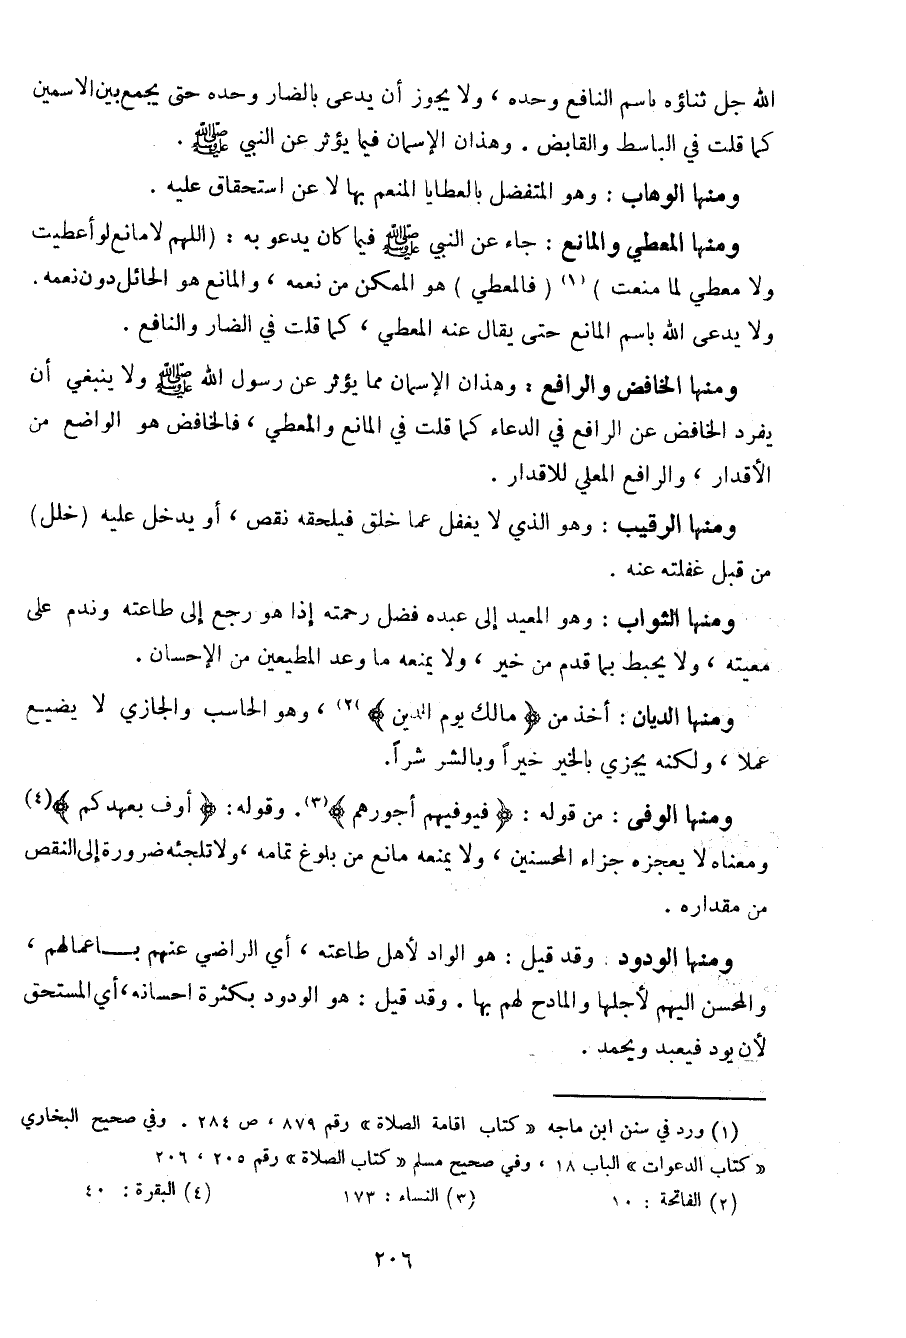 الله جل ثناؤه باسم النافع وحده ، ولا يجوز أن يدعى بالضار وحده حتى يجمع بين الاسمين
كما قلت في الباسط والقابض . وهذان الإسمان فيما يؤثر عن النبي ﷺ .
ومنها الوهاب : وهو المتفضل بالعطايا المنعم بها لا عن استحقاق عليه .
ومنها المعطي والمانع : جاء عن النبي ﷺ فيما كان يدعو به : (اللهم لا مانع لو أعطيت
ولا معطي لما منعت ) (١) ( فالمعطي ) هو الممكن من نعمه ، والمانع هو الحائل دون نعمه .
ولا يدعى الله باسم المانع حتى يقال عنه المعطي ، كما قلت في الضار والنافع .
ومنها الخافض والرافع : وهذان الإسمان مما يؤثر عن رسول الله ﷺ ولا ينبغي أن
يفرد الخافض عن الرافع في الدعاء كما قلت في المانع والمعطي ، فالخافض هو الواضع من
الأقدار ، والرافع المعلي للاقدار .
ومنها الرقيب : وهو الذي لا يغفل عما خلق فيلحقه نقص ، أو يدخل عليه (خلل)
من قبل غفلته عنه .
ومنها الثواب : وهو المعيد إلى عبده فضل رحمته إذا هو رجع إلى طاعته وندم على
معيته ، ولا يحبط بما قدم من خير ، ولا يمنعه ما وعد المطيعين من الإحسان .
ومنها الديان : أخذ من ﴿ مالك يوم الدين ﴾ (٢) ، وهو الحاسب والجازي لا يضيع
عملا ، ولكنه يجزي بالخير خيراً وبالشر شراً.
ومنها الوفى : من قوله : ﴿ فيوفيهم أجورهم ﴾(٣). وقوله: ﴿ أوف بعهدكم ﴾(٤)
ومعناه لا يعجزه جزاء المحسنين ، ولا يمنعه مانع من بلوغ تمامه ، ولا تلجئه ضرورة إلى النقص
من مقداره .
ومنها الودود . وقد قيل : هو الواد لأهل طاعته ، أي الراضي عنهم بـاعمالهم ،
والمحسن اليهم لأجلها والمادح لهم بها . وقد قيل : هو الودود بكثرة احسانه، أي المستحق
لأن يود فيعبد ويحمد .
(١) ورد في سنن ابن ماجه « كتاب اقامة الصلاة » رقم ٨٧٩ ، ص ٢٨٤ . وفي صحيح البخاري
« كتاب الدعوات » الباب ١٨ ، وفي صحيح مسلم « كتاب الصلاة » رقم ٢٠٥ ، ٢٠٦
(٢) الفاتحة : ١٠ (٣) النساء : ١٧٣ (٤) البقرة : ٤٠
٢٠٦